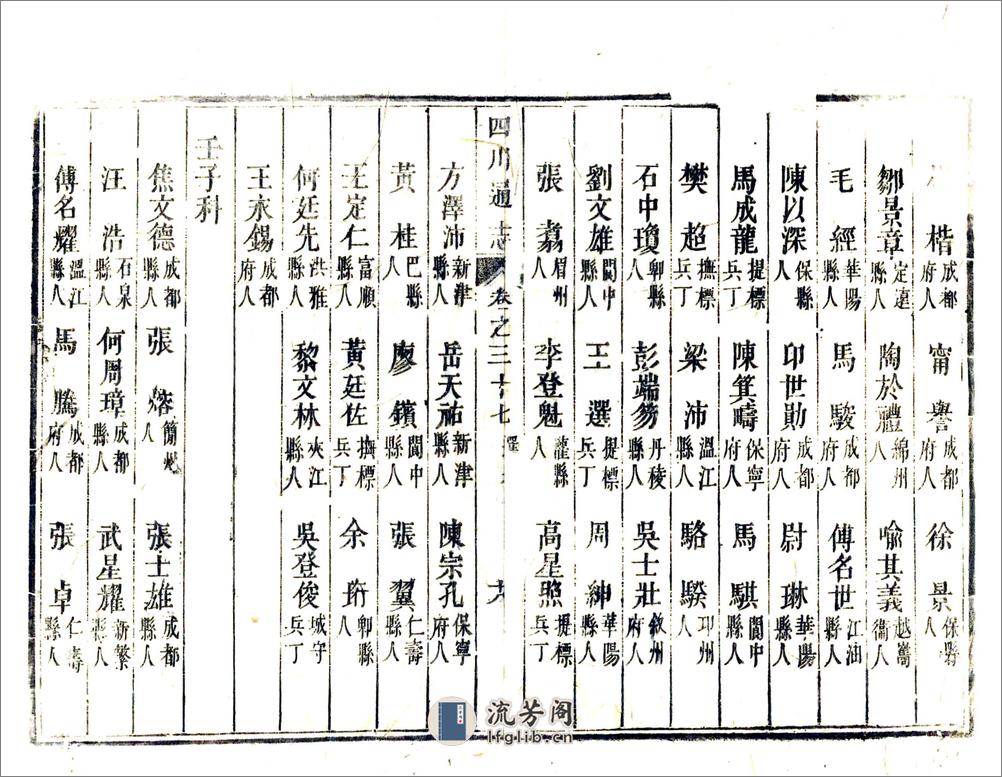 楷 成都府人 甯譽 成都府人 徐景 保縣人
鄒景章 定遠縣人 陶於禮 綿州人 喻其義 越嶲衞人
毛經 華陽縣人 馬駿 成都府人 傅名世 江油縣人
陳以深 保縣人 印世勛 成都府人 尉琳 華陽縣人
馬成龍 提標兵丁 陳箕疇 保寧府人 馬騏 閬中縣人
樊超 撫標兵丁 梁沛 溫江縣人 駱騤 卭州人
石中瓊 郫縣人 彭端笏 丹稜縣人 吳士壯 敘州府人
劉文雄 閬中縣人 王選 提標兵丁 周紳 華陽縣人
張翥 眉州人 李登魁 灌縣人 高星照 提標兵丁
四川通志 卷之三十七 選
方澤沛 新津縣人 岳天祐 新津縣人 陳宗孔 保寧府人
黃桂 巴縣人 廖鑌 閬中縣人 張翼 仁壽縣人
王定仁 富順縣人 黃廷佐 撫標兵丁 余珩 郫縣人
何廷先 洪雅縣人 黎文林 夾江縣人 吳登俊 城守兵丁
王永錫 成都府人
壬子科
焦文德 成都縣人 張熔 簡州人 張士雄 成都縣人
汪浩 石泉縣人 何周璋 成都縣人 武星耀 新繁縣人
傅名耀 溫江縣人 馬騰 成都府人 張卓 仁壽縣人
流芳阁
lfglib.cn